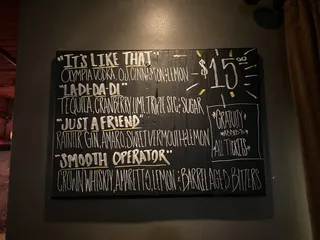 "IT'S LIKE THAT"
OLYMPIA VODKA, OJ, CINNAMON & LEMON
"LA-DI-DA-DI"
TEQUILA, CRANBERRY, LIME, TRIPLE SEC & SUGAR
"JUST A FRIEND"
RAINIER GIN, AMARO, SWEET VERMOUTH & LEMON
"SMOOTH OPERATOR"
CROWN WHISKEY, AMARETTO, LEMON & BARREL AGED BITTERS
-$15
GRATUITY
ADDED TO
ALL TICKETS